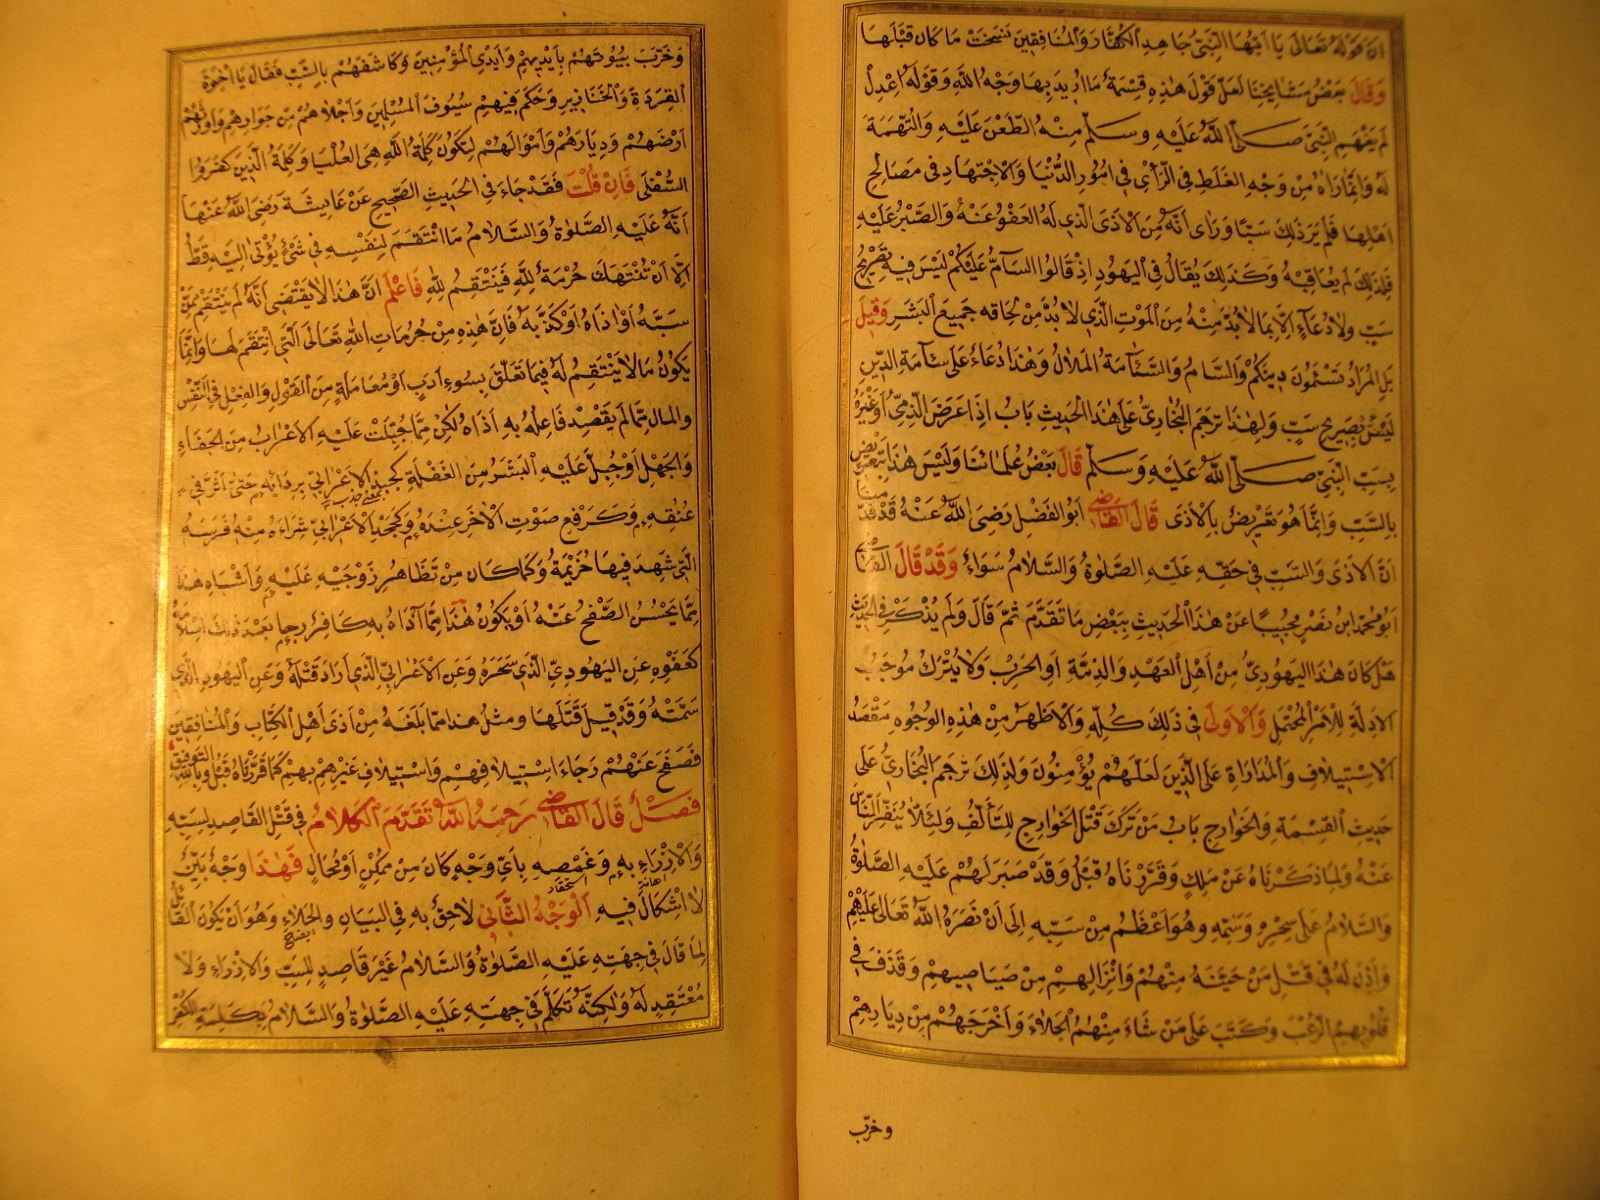 ان قوله تعالى يا ايها النبي جاهد الكفار والمنافقين نسخت ما كان قبلها
وقال بعض مشايخنا لعل قول هذه قسمة ما اريد بها وجه الله وقوله اعدل
لم يفهم النبي صلى الله عليه وسلم منه الطعن عليه والتهمة
له وانما راه من وجه الغلط في الرأي في امور الدنيا والاجتهاد في مصالح
اهلها فلم ير ذلك سبا وراى انه من الاذى الذي له العفو عنه والصبر عليه
فلذلك لم يعاقبه وكذلك يقال في اليهود اذ قالوا السام عليكم ليس فيه تصريح
سب ولا دعاء الا بما لا بد منه من الموت الذي لا بد من لحاقه جميع البشر وقيل
بل المراد تسئمون دينكم والسام والسئامة الملال وهذا دعاء على سئامة الدين
ليس بصريح سب ولهذا ترجم البخاري على هذا الحديث باب اذا عرض الذمي او غيره
بسب النبي صلى الله عليه وسلم قال بعض علمائنا وليس هذا بتعريض
بالسب وانما هو تعريض بالاذى قال القاضي ابو الفضل رضي الله عنه قد قدمنا
ان الاذى والسب في حقه عليه الصلوة والسلام سواء وقد قال القاضي
ابو محمد ابن نصر مجيبا عن هذا الحديث ببعض ما تقدم ثم قال ولم يذكر في الحديث
هل كان هذا اليهودي من اهل العهد والذمة او الحرب ولا يترك موجب
الادلة للامر المحتمل والاولى في ذلك كله والاظهر من هذه الوجوه مقصد
الاستيلاف والمداراة على الذين لعلهم يؤمنون ولذلك ترجم البخاري على
حديث القسمة والخوارج باب من ترك قتل الخوارج للتألف ولئلا ينفر الناس
عنه ولما ذكرناه عن ملك وقررناه قبل وقد صبر لهم عليه الصلوة
والسلام على سحره وسمه وهو اعظم من سبه الى ان نصره الله تعالى عليهم
واذن له في قتل من حينه منهم وانزالهم من صياصيهم وقذف في
قلوبهم الرعب وكتب على من شاء منهم الجلاء واخرجهم من ديارهم
وخرب
وخرب بيوتهم بايديهم وايدي المؤمنين وكاشفهم بالسب فقال يا اخوة
القردة والخنازير وحكم فيهم سيوف المسلمين واجلاهم من جوارهم واورثهم
ارضهم وديارهم واموالهم لتكون كلمة الله هي العليا وكلمة الذين كفروا
السفلى فان قلت فقد جاء في الحديث الصحيح عن عايشة رضي الله عنها
انه عليه الصلوة والسلام ما انتقم لنفسه في شئ يؤتى اليه قط
الا ان تنتهك حرمة لله فينتقم لله فاعلم ان هذا لا يقتضي انه لم ينتقم ممن
سبه او اذاه او كذبه فان هذه من حرمات الله تعالى التي انتقم لها وانما
يكون ما لا ينتقم له فيما تعلق بسوء ادب او معاملة من القول والفعل في النفس
والمال مما لم يقصد فاعله به اذاه لكن مما جبلت عليه الاعراب من الجفاء
والجهل او جبل عليه البشر من الغفلة كجبذ الاعرابي بردائه حتى اثر في
بمعنى جذب
عنقه وكرفع صوت الاخر عنده وكجحد الاعرابي شراءه منه فرسه
التي شهد فيها خزيمة وكما كان من تظاهر زوجيه عليه واشباه هذا
مما يحسن الصفح عنه او يكون هذا مما آذاه به كافر رجا بعد ذلك اسلامه
كعفوه عن اليهودي الذي سحره وعن الاعرابي الذي اراد قتله وعن اليهودية التي
سمته وقد قيل قتلها ومثل هذا مما بلغه من اذى اهل الكتاب والمنافقين
فصفح عنهم رجاء استيلافهم واستيلاف غيرهم بهم كما قررناه قبل وبالله التوفيق
فصل قال القاضي رحمه الله تقدم الكلام في قتل القاصد لسبه
والازراء به وغمصه باي وجه كان من ممكن او محال فهذا وجه بين
اهانة استحقار
لا اشكال فيه الوجه الثاني لاحق به في البيان والجلاء وهو ان يكون القائل
لما قال في جهته عليه الصلوة والسلام غير قاصد للسب والازراء ولا
معتقد له ولكنه تكلم في جهته عليه الصلوة والسلام بكلمة الكفر